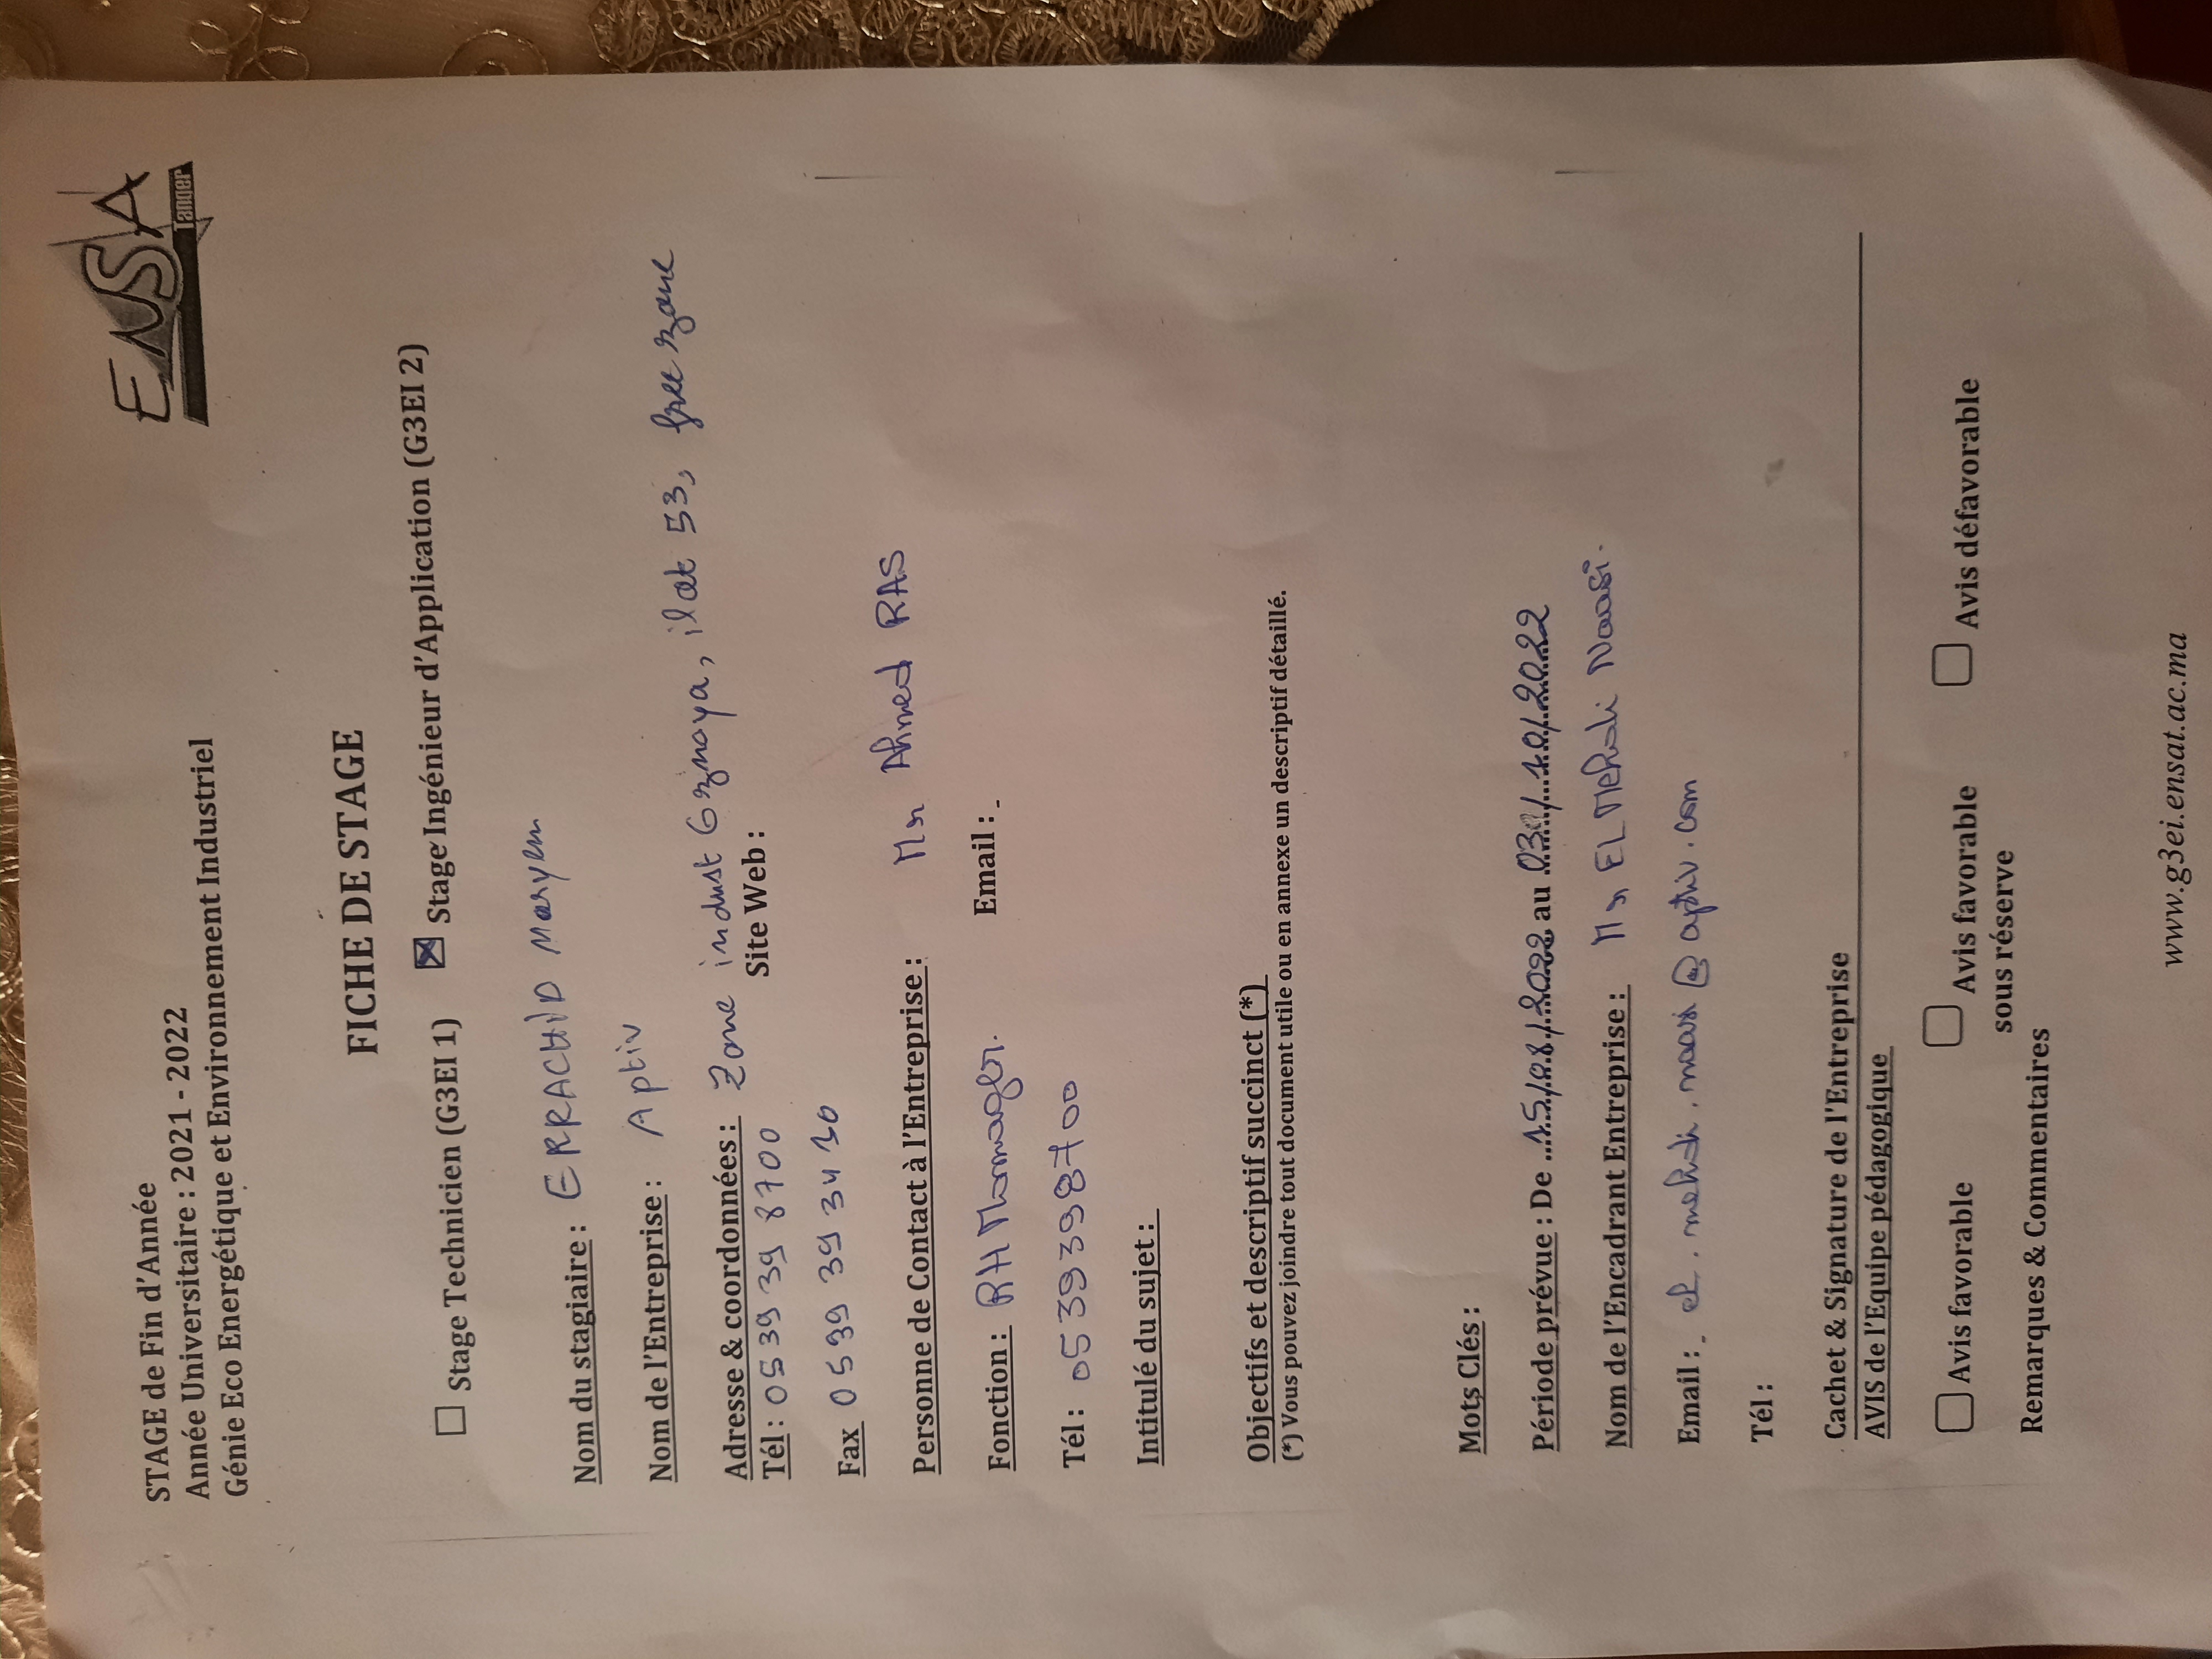 STAGE de Fin d'Année
Année Universitaire : 2021 - 2022
Génie Eco Energétique et Environnement Industriel
ENSA
Tanger
FICHE DE STAGE
Stage Technicien (G3EI 1) Stage Ingénieur d'Application (G3EI 2)
Nom du stagiaire : ERRACHiD Maryem
Nom de l'Entreprise : Aptiv
Adresse & coordonnées : Zone indust Gznaya, ilot 53, free zone
Tél : 0539 39 8700 Site Web :
Fax 0539 39 34 10
Personne de Contact à l'Entreprise : Mr Ahmed RAS
Fonction : RH Manager. Email :
Tél : 0539398700
Intitulé du sujet :
Objectifs et descriptif succinct (*)
(*) Vous pouvez joindre tout document utile ou en annexe un descriptif détaillé.
Mots Clés :
Période prévue : De 15/08/2022 au 03/10/2022
Nom de l'Encadrant Entreprise : Mr EL Mehdi Naasi.
Email : el.mehdi.naasi@aptiv.com
Tél :
Cachet & Signature de l'Entreprise
AVIS de l'Equipe pédagogique
Avis favorable Avis favorable sous réserve Avis défavorable
Remarques & Commentaires
www.g3ei.ensat.ac.ma